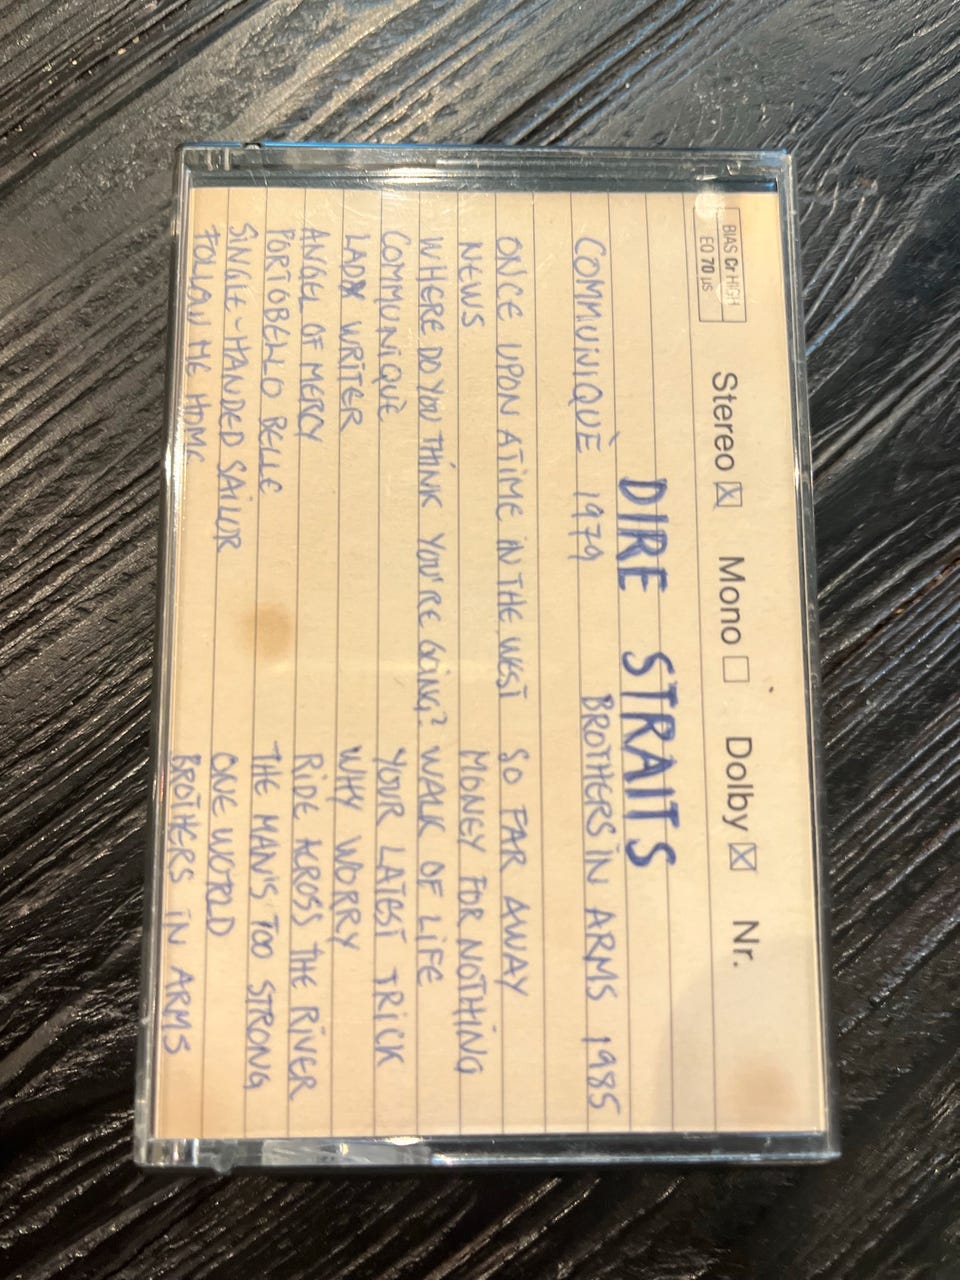 BIAS Cr HIGH
EQ 70 µs
Stereo ☒ Mono ☐ Dolby ☒ Nr.
DIRE STRAITS
COMMUNIQUÈ 1979
ONCE UPON A TIME IN THE WEST
NEWS
WHERE DO YOU THINK YOU'RE GOING?
COMMUNIQUÈ
LADY WRITER
ANGEL OF MERCY
PORTOBELLO BELLE
SINGLE-HANDED SAILOR
FOLLOW ME HOME
BROTHERS IN ARMS 1985
SO FAR AWAY
MONEY FOR NOTHING
WALK OF LIFE
YOUR LATEST TRICK
WHY WORRY
RIDE ACROSS THE RIVER
THE MAN'S TOO STRONG
ONE WORLD
BROTHERS IN ARMS